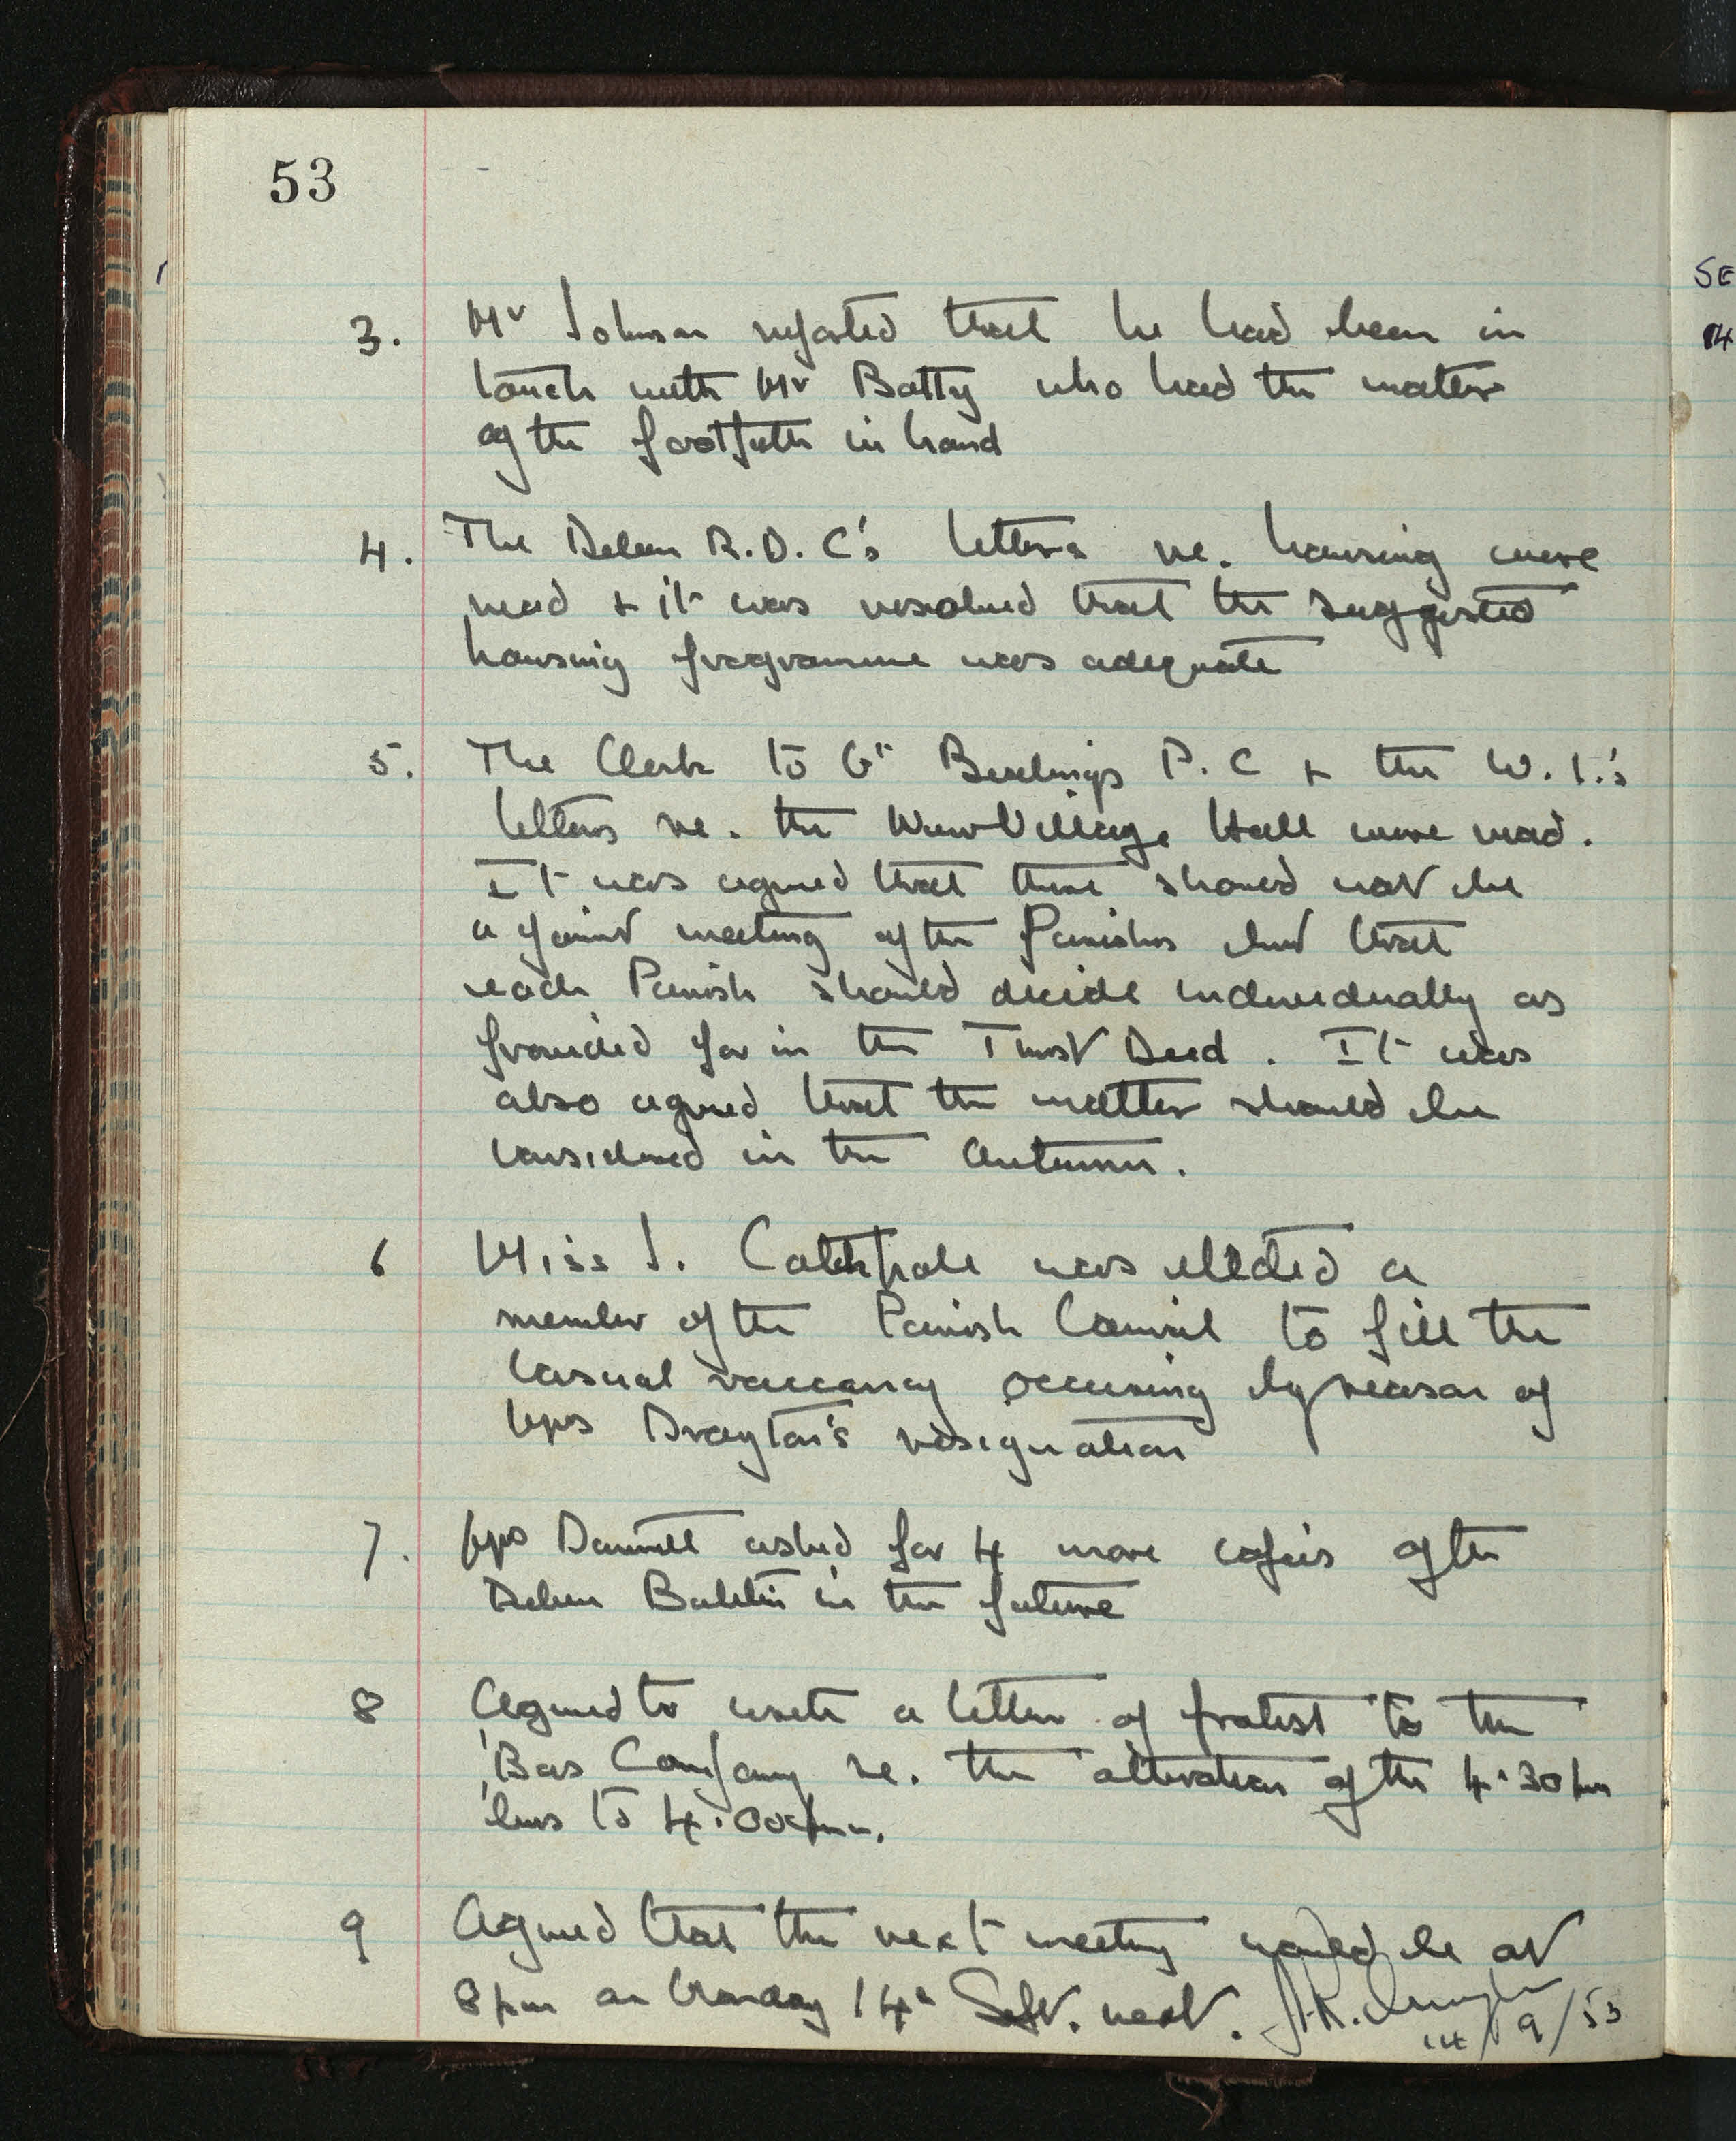 53
3. Mr Johnson reported that he had been in
touch with Mr Batty who had the matter
of the footpath in hand
4. The Deben R.D.C's letters re. housing were
read & it was resolved that the suggested
housing programme was adequate
5. The Clerk to Gt Bealings P.C & the W.I.'s
letters re. the New Village Hall were read.
It was agreed that there should not be
a joint meeting of the Parishes but that
each Parish should decide individually as
provided for in the Trust Deed. It was
also agreed that the matter should be
considered in the Autumn.
6 Miss J. Catchpole was elected a
member of the Parish Council to fill the
casual vacancy occuring by reason of
Mrs Drayton's resignation
7. Mrs asked for 4 more copies of the
Deben Bulletin in the future
8 Agreed to write a letter of protest to the
Bus Company re. the alteration of the 4.30pm
bus to 4.00pm.
9 Agreed that the next meeting would be at
8pm on Monday 14th Sept. next.
14/9/53
SE
14